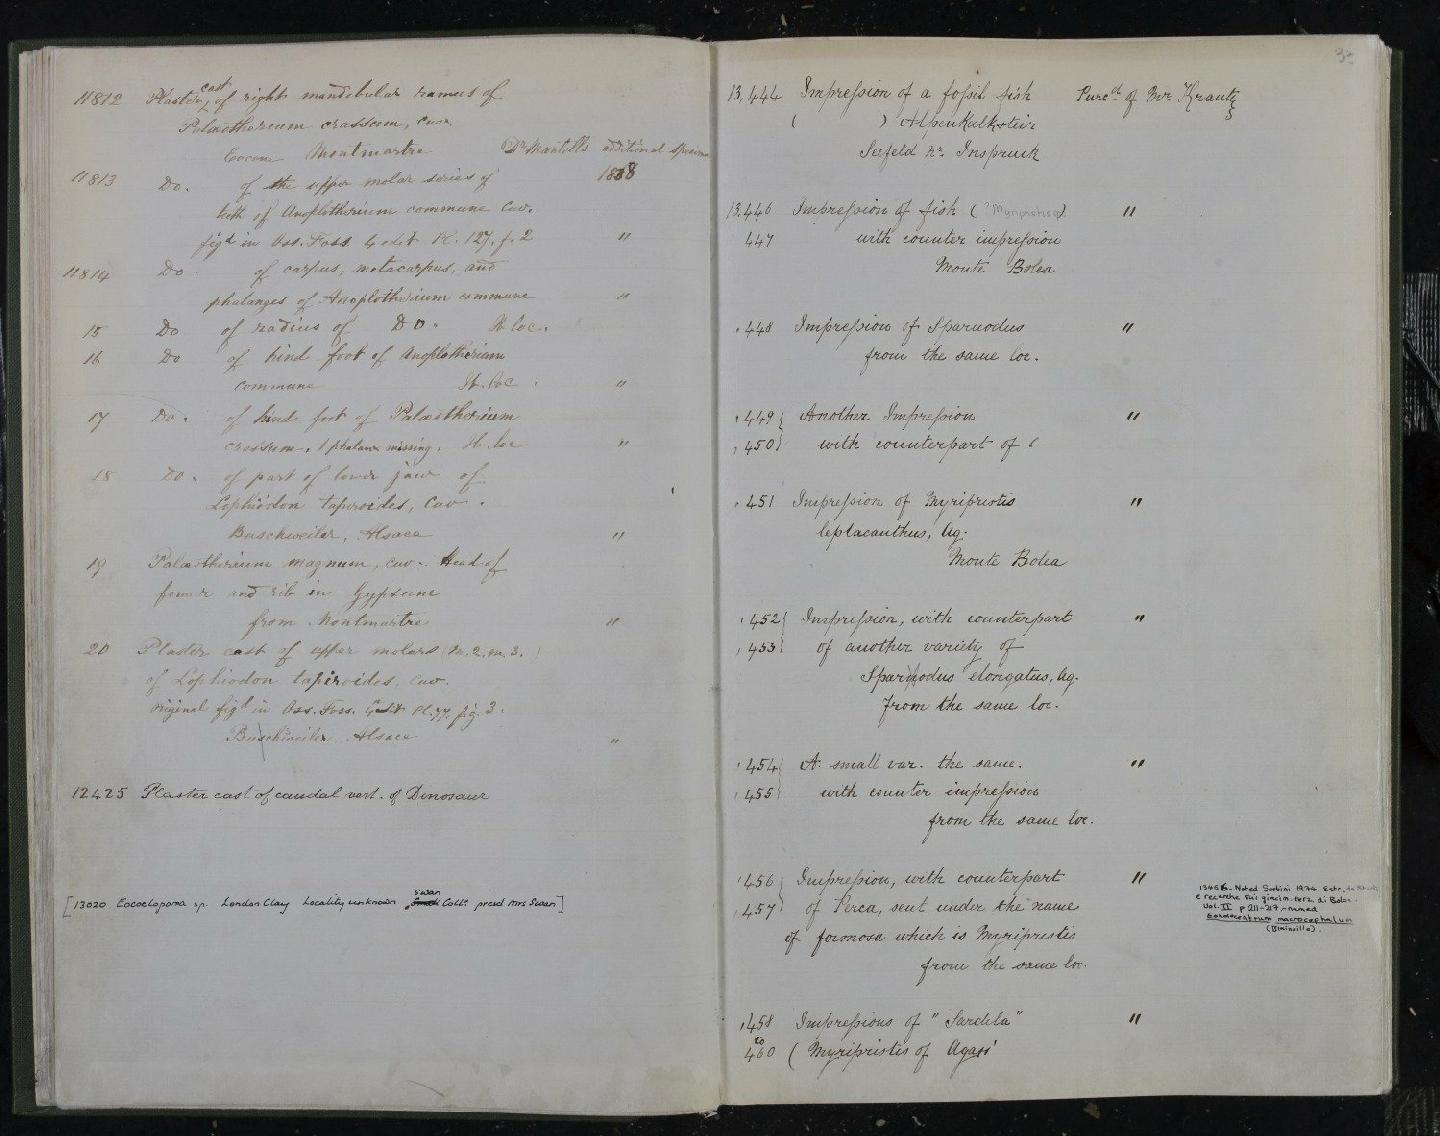 11812 Plaster cast of right mandibular ramus of
Palæotherium crassum, Cuv.
Eocene Montmartre Dr Mantell's additional specimens
11813 Do. of the upper molar series of 1838
teeth of Anoplotherium commune Cuv.
figd in Oss. Foss. 4 edit Pl. 127, f. 2 "
11814 Do of carpus, metacarpus, and
phalanges of Anoplotherium commune "
15 Do of radius of Do. St. loc.
16 Do of hind foot of Anoplotherium
commune St. loc. "
17 Do. of hind foot of Palæotherium
crassum, 1 phalanx missing. St. loc "
18 Do. of part of lower jaw of
Lophiodon tapiroides, Cuv.
Buschweiler, Alsace "
19 Palæotherium magnum, Cuv. Head of
femur and rib in Gypsum
from Montmartre "
20 Plaster cast of upper molars (m. 2. m. 3.)
of Lophiodon tapiroides, Cuv.
original figd in Oss. Foss. 4 edit Pl. 77, fig. 3.
Buschweiler Alsace "
12425 Plaster cast of caudal vert. of Dinosaur
swan
[13020 Eocoelopoma sp. London Clay Locality unknown Colln. presd Mrs Swan]
33
13,444 Impression of a fossil fish Purcd. of Mr Krantz
( ) Alpenkalkstein
Seefeld nr. Inspruck
13,446 Impression of fish (? Myripristis) "
447 with counter impression
Monte Bolca
448 Impression of Sparnodus "
from the same loc.
449 Another Impression "
450 with counterpart of
451 Impression of Myripristis "
leptacanthus, Ag.
Monte Bolca
452 Impression, with counterpart "
453 of another variety of
Sparnodus elongatus, Ag.
from the same loc.
454 A small var. the same. "
455 with counter impression
from the same loc.
456 Impression, with counterpart "
457 of Perca, sent under the name
of formosa which is Myripristis
from the same loc.
13456 - Noted Sorbini 1974 Estr. da Studi
e ricerche sui giacim. terz. di Bolca.
Vol. II p 211-217, - named
Eoholocentrum macrocephalum
(Blainville).
458 Impressions of "Sardila" "
to
460 ( Myripristis of Agass